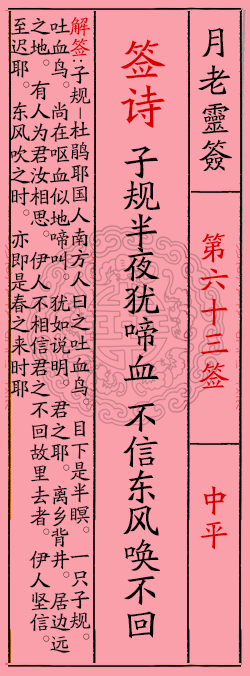 月老靈簽
第六十三签
中平
签诗 子规半夜犹啼血 不信东风唤不回
解签:子规-杜鹃耶国人南方人曰之吐血鸟。目下是半暝。一只子规。
吐血鸟。尚在呕血似地啼叫。犹如说明。君之耶。离乡背井。居边远
之地。有人为君汝相思。伊人不相信君之不回故里去者。伊人坚信。
至迟耶。东风吹之时。亦即是春之来时耶